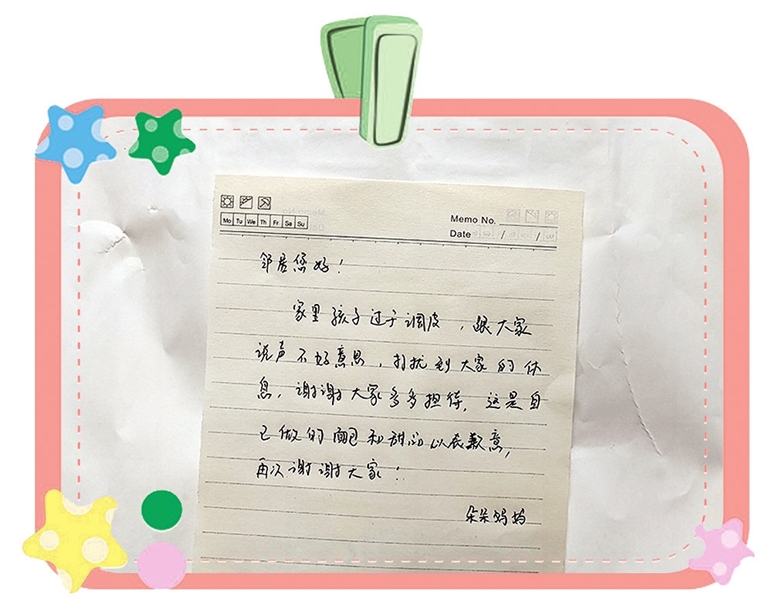 Mo Tu We Th Fr Sa Su
Memo No.
Date / /
邻居您好！
家里孩子过于调皮，跟大家
说声不好意思，打扰到大家的休
息，谢谢大家多多担待，这是自
己做的面包和甜品以表歉意，
再次谢谢大家！
朵朵妈妈